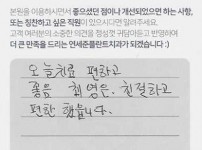 본원을 이용하시면서 좋으셨던 점이나 개선되었으면 하는 사항,
또는 칭찬하고 싶은 직원이 있으시다면 알려주세요.
고객 여러분의 소중한 의견을 정성껏 귀담아듣고 반영하여
더 큰 만족을 드리는 연세준플란트치과가 되겠습니다 :)
오늘치료 편하고
좋음 최영은. 친절하고
편한 했습니다.